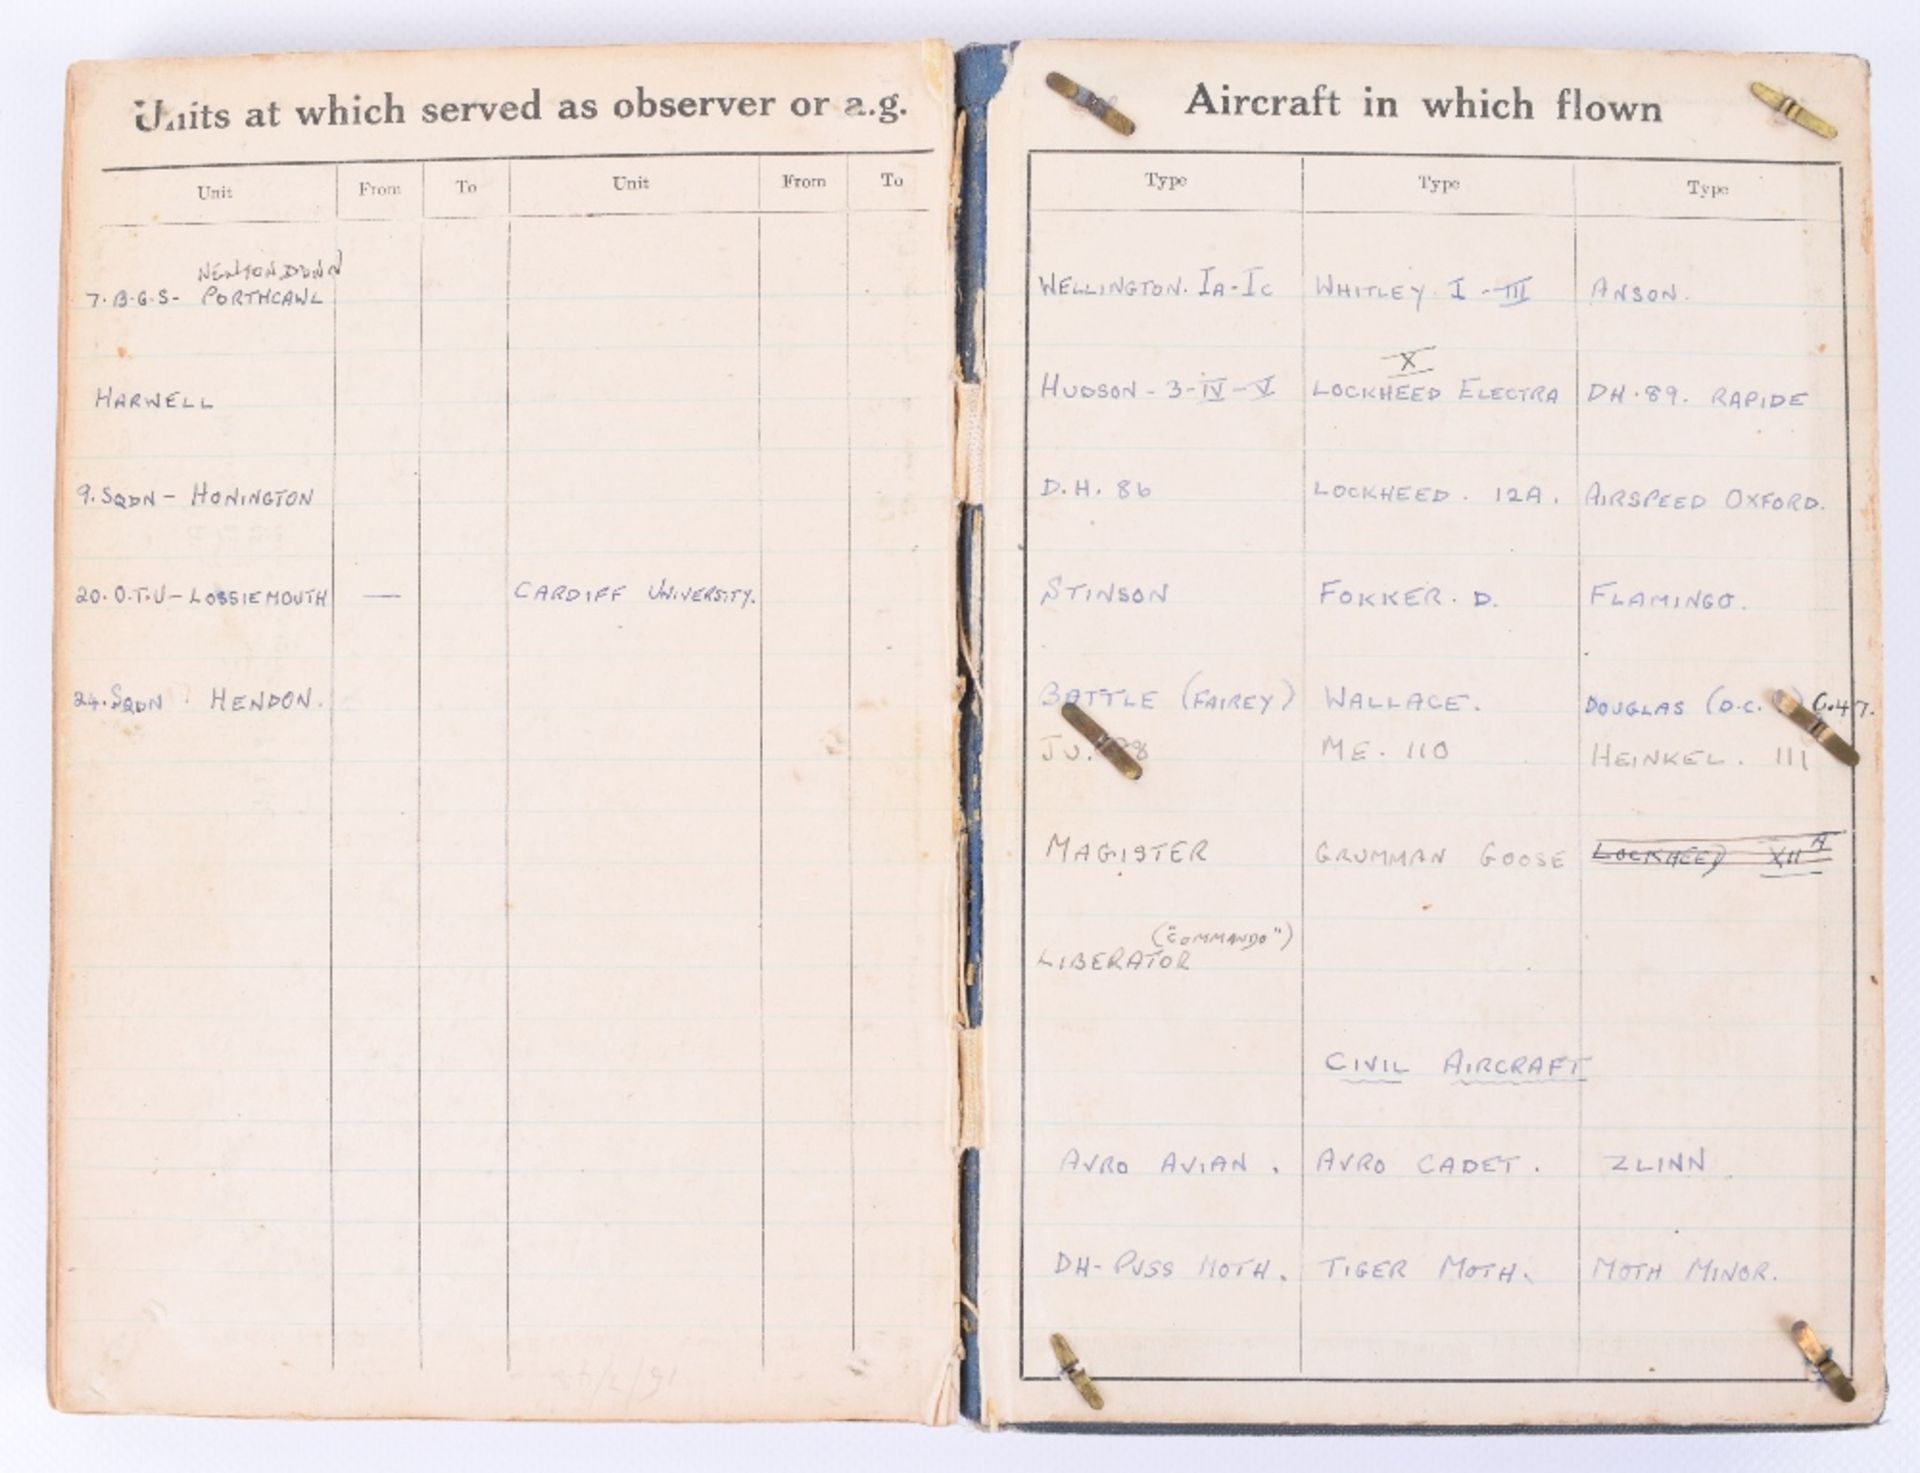 Units at which served as observer or a.g.
Unit From To Unit From To
7.B.G.S- PORTHCAWL
HARWELL
9.SQDN - HONINGTON
20.O.T.U - LOSSIEMOUTH — CARDIFF UNIVERSITY.
24.SQDN HENDON.
Aircraft in which flown
Type Type Type
WELLINGTON. IA-IC WHITLEY. I - III ANSON.
X
HUDSON - 3 - IV - V LOCKHEED ELECTRA DH.89. RAPIDE
D.H. 86 LOCKHEED. 12A. AIRSPEED OXFORD.
STINSON FOKKER. D. FLAMINGO.
BATTLE (FAIREY) WALLACE. DOUGLAS (D.C. ) C.47.
JU. 8 ME. 110 HEINKEL. 111
MAGISTER GRUMMAN GOOSE LOCKHEED XIIA
("COMMANDO")
LIBERATOR
CIVIL AIRCRAFT
AVRO AVIAN. AVRO CADET. ZLINN
DH- PUSS MOTH. TIGER MOTH. MOTH MINOR.